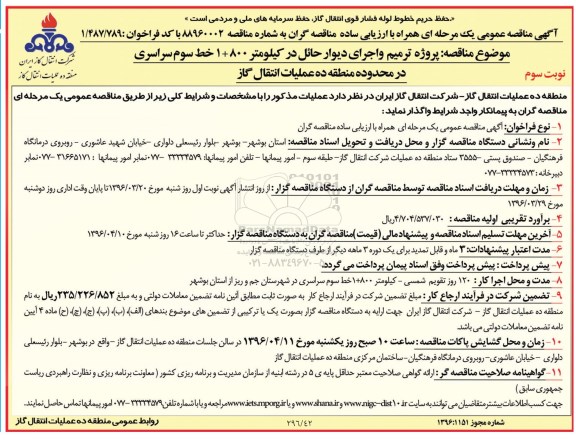 «حفظ حریم خطوط لوله فشار قوی انتقال گاز، حفظ سرمایه های ملی و مردمی است»
آگهی مناقصه عمومی یک مرحله ای همراه با ارزیابی ساده مناقصه گران به شماره مناقصه ۸۸۹۶۰۰۰۲ با کد فراخوان: ۱/۴۸۷/۷۸۹
موضوع مناقصه: پروژه ترمیم واجرای دیوار حائل در کیلومتر ۸۰۰+۱ خط سوم سراسری
در محدوده منطقه ده عملیات انتقال گاز
نوبت سوم
شرکت انتقال گاز ایران
منطقه ده عملیات انتقال گاز
منطقه ده عملیات انتقال گاز – شرکت انتقال گاز ایران در نظر دارد عملیات مذکور را با مشخصات و شرایط کلی زیر از طریق مناقصه عمومی یک مرحله ای
مناقصه گران به پیمانکار واجد شرایط واگذار نماید:
۱– نوع فراخوان: آگهی مناقصه عمومی یک مرحله ای همراه با ارزیابی ساده مناقصه گران
۲– نام ونشانی دستگاه مناقصه گزار و محل دریافت و تحویل اسناد مناقصه: استان بوشهر– بوشهر –بلوار رئیسعلی دلواری –خیابان شهید عاشوری – روبروی درمانگاه
فرهنگیان – صندوق پستی –۳۵۵۵ ستاد منطقه ده عملیات شرکت انتقال گاز– طبقه سوم – امور پیمانها – تلفن امور پیمانها: ۳۳۳۳۴۵۷۹ –۰۷۷ نمابر امور پیمانها : ۳۱۶۶۵۱۷۱ –۰۷۷ نمابر
دبیرخانه : ۳۳۳۳۴۵۷۳–۰۷۷
۳– زمان و مهلت دریافت اسناد مناقصه توسط مناقصه گران از دستگاه مناقصه گزار : از روز انتشار آگهی نوبت اول روز شنبه مورخ ۱۳۹۶/۰۳/۲۰ تا پایان وقت اداری روز دوشنبه
مورخ ۱۳۹۶/۰۳/۲۹
۴– برآورد تقریبی اولیه مناقصه : ۴/۷۰۴/۵۳۷/۰۳۰ ریال
۵– آخرین مهلت تسلیم اسناد مناقصه و پیشنهاد مالی (قیمت) مناقصه گران به دستگاه مناقصه گزار: حداکثر تا ساعت ۱۶ روز شنبه مورخ ۱۳۹۶/۰۴/۱۰
۶– مدت اعتبار پیشنهادات: ۳ ماه و قابل تمدید برای یک دوره ۳ ماهه دیگر از طرف دستگاه مناقصه گزار
۷– پیش پرداخت : پیش پرداخت وفق اسناد پیمان پرداخت می گردد.
۸– مدت و محل اجرا کار : ۱۲۰ روز تقویم شمسی – کیلومتر ۸۰۰+۱ خط سوم سراسری در شهرستان جم و ریز از استان بوشهر
۹– تضمین شرکت در فرآیند ارجاع کار : مبلغ تضمین شرکت در فرآیند ارجاع کار به صورت ثابت مطابق آئین نامه تضمین معاملات دولتی و به مبلغ ۲۳۵/۲۲۶/۸۵۲ ریال به نام
منطقه ده عملیات انتقال گاز – شرکت انتقال گاز ایران جهت ارایه به دستگاه مناقصه گزار بصورت یک یا ترکیبی از تضمین های موضوع بندهای (الف)، (ب)، (پ)، (ج)، (چ)، (ح) ماده ۴ آیین
نامه تضمین معاملات دولتی می باشد.
۱۰– زمان و محل گشایش پاکات مناقصه : ساعت ۱۰ صبح روز یکشنبه مورخ ۱۳۹۶/۰۴/۱۱ در سالن جلسات منطقه ده عملیات انتقال گاز –واقع در بوشهر– بلوار رئیسعلی
دلواری –خیابان عاشوری– روبروی درمانگاه فرهنگیان–ساختمان مرکزی منطقه ده عملیات انتقال گاز
۱۱– گواهینامه صلاحیت مناقصه گر: ارائه گواهی صلاحیت معتبر حداقل پایه ی ۵ در رشته ابنیه از سازمان مدیریت و برنامه ریزی کشور ( معاونت برنامه ریزی و نظارت راهبردی ریاست
جمهوری سابق )
جهت کسب اطلاعات بیشتر متقاضیان می توانند به سایت www.nigc-dist10.ir و www.shana.ir و www.iets.mporg.ir مراجعه و یا با شماره تلفن ۳۳۳۳۴۵۷۹–۰۷۷ امور پیمانها تماس حاصل نمایند.
شماره مجوز ۱۱۵۱: ۱۳۹۶
۲۹۶/۴۲
روابط عمومی منطقه ده عملیات انتقال گاز